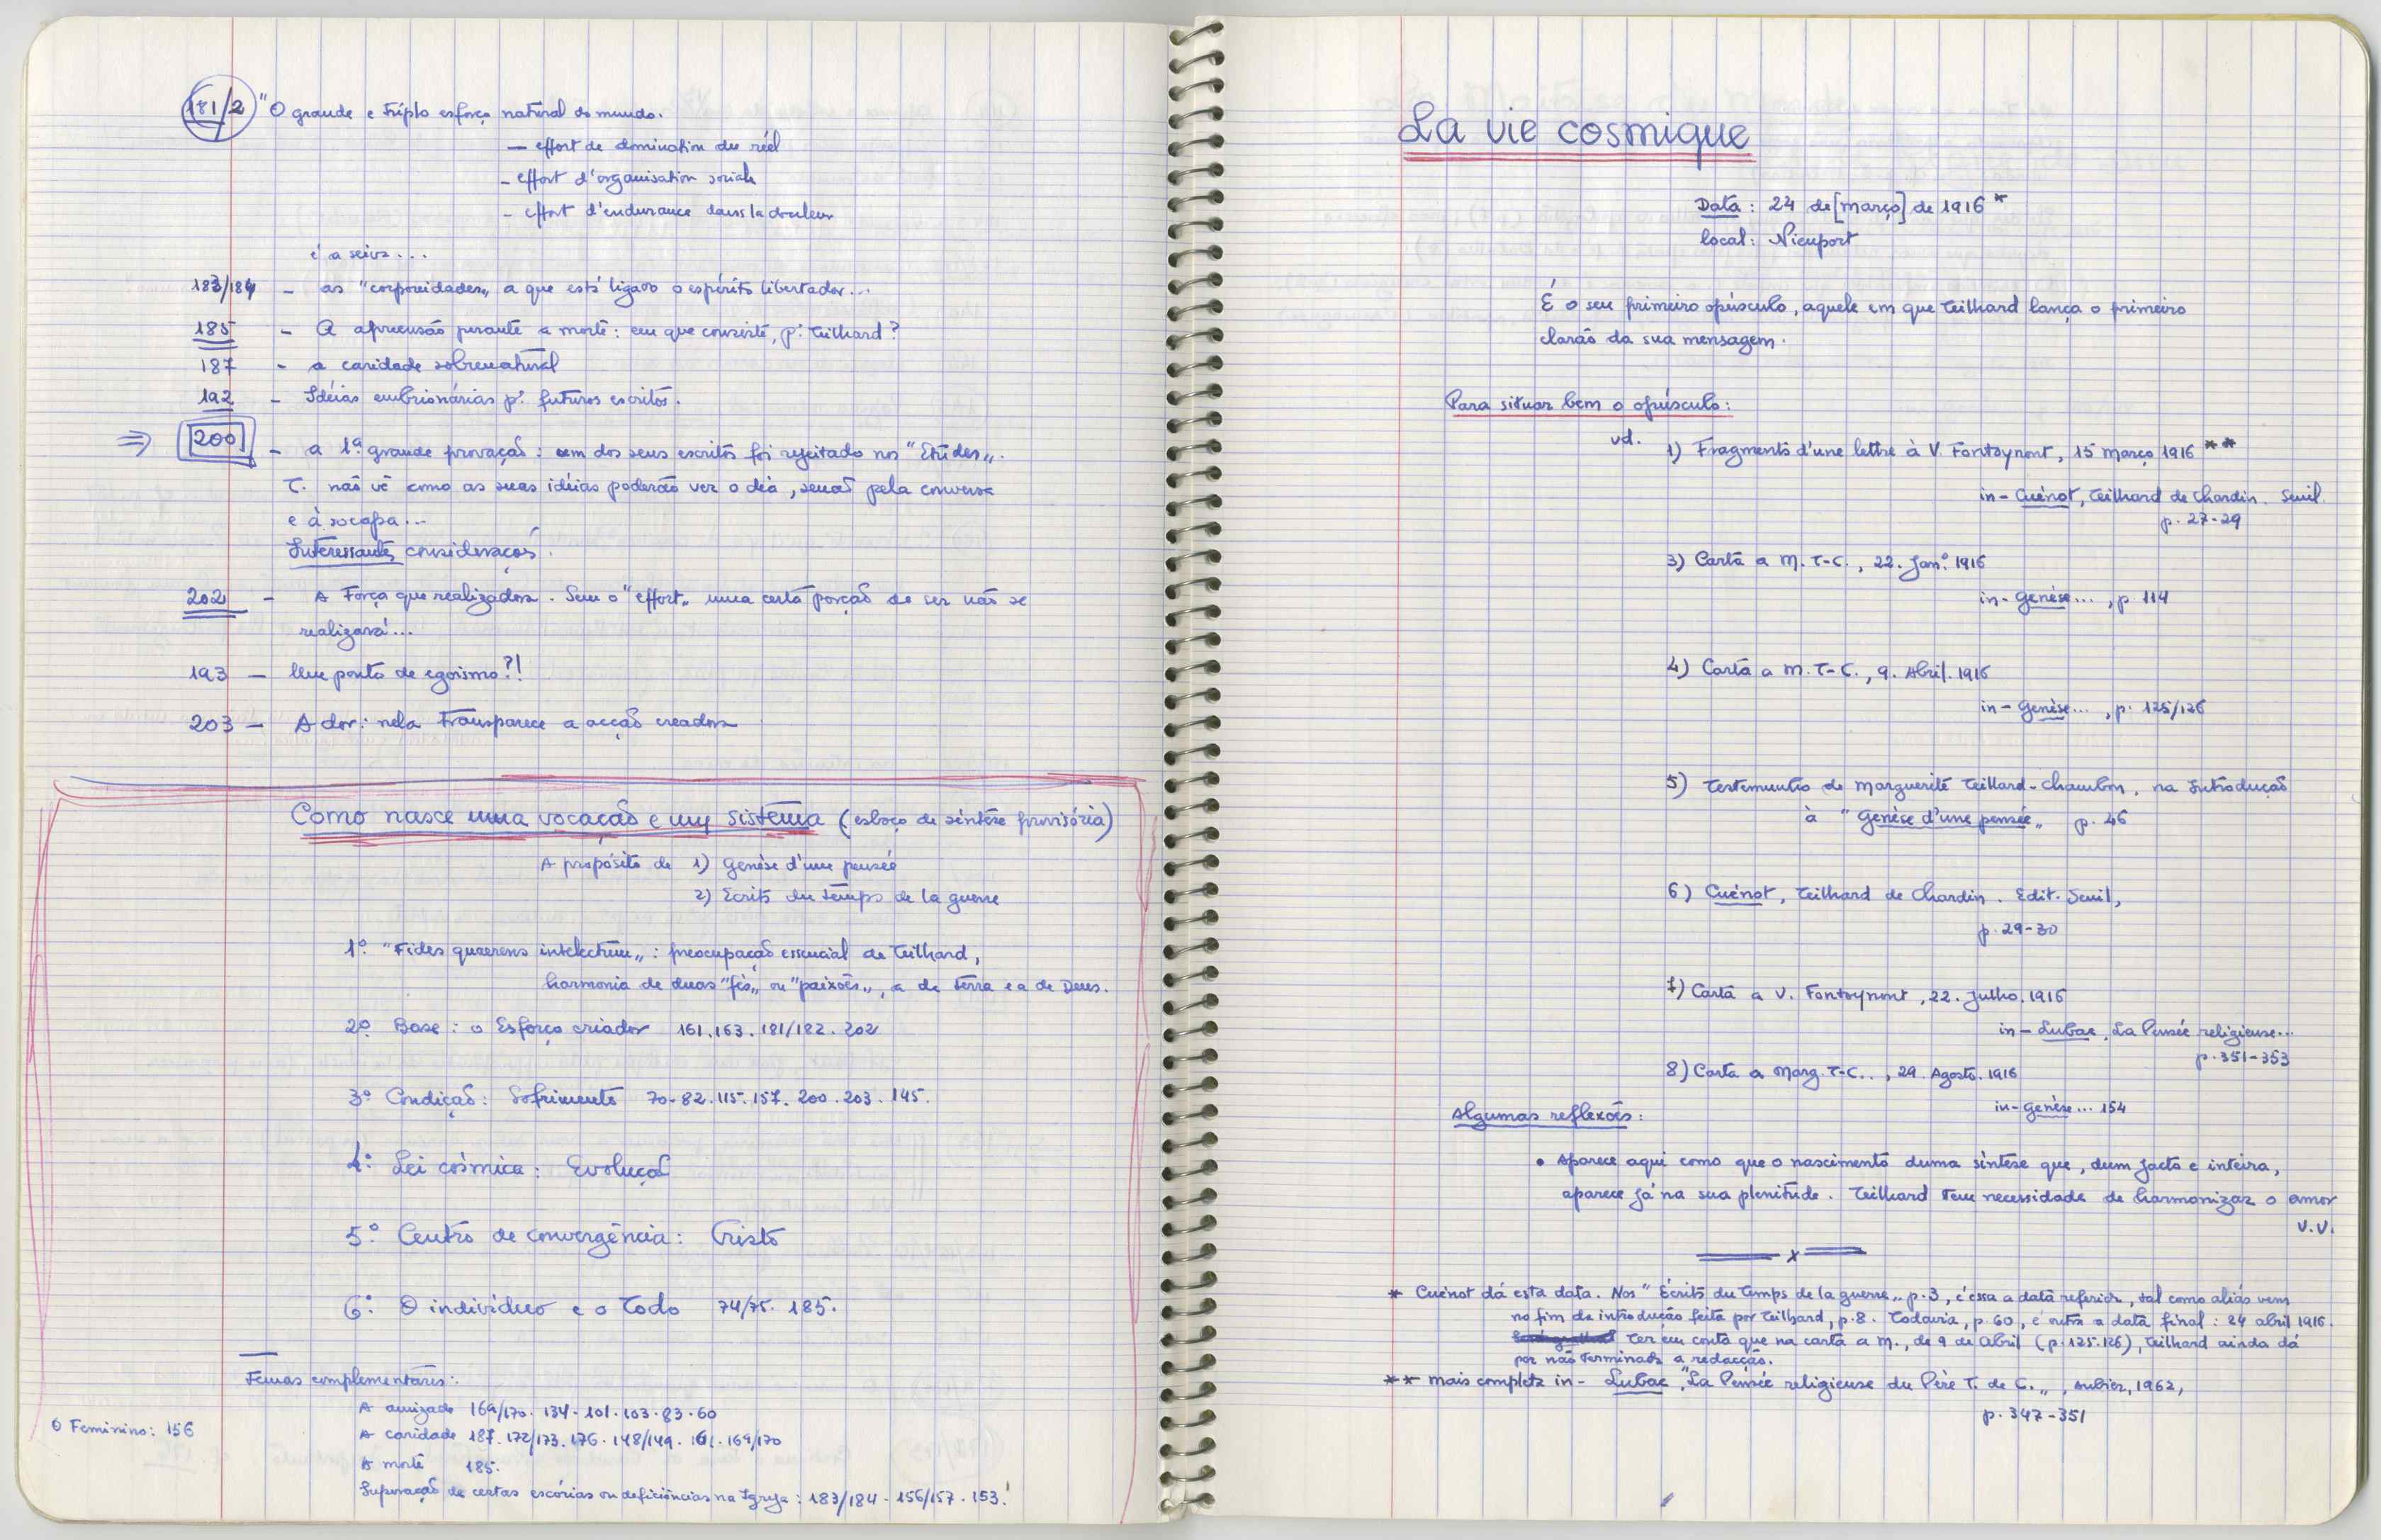 181/2 "O grande e triplo esforço natural do mundo.
— effort de domination du réel
- effort d'organisation sociale
- effort d'endurance dans la douleur
é a seiva...
183/184 - as "corporeidades" a que está ligado o espírito libertador...
185 - A apreensão perante a morte: em que consiste, p.ª Teilhard?
187 - a caridade sobrenatural
192 - Idéias embrionárias p.ª futuros escritos.
⇒ 200 - a 1ª grande provação: um dos seus escritos foi rejeitado nos "Études".
T. não vê como as suas idéias poderão ver o dia, senão pela conversa
e à socapa...
Interessantes considerações.
202 - A Força que realizadora. Sem o "effort" uma certa porção de ser não se
realizará...
193 — Um ponto de egoísmo?!
203 — A dor: nela transparece a acção creadora
Como nasce uma vocação e um sistema (esboço de síntese provisória)
A propósito de 1) Genèse d'une pensée
2) Écrits du temps de la guerre
1º "Fides quaerens intelectum": preocupação essencial de Teilhard,
harmonia de duas "fés" ou "paixões", a da terra e a de Deus.
2º Base: o Esforço criador 161.163.181/182.202
3º Condição: Sofrimento 70-82.115.157.200.203.145.
4º Lei cósmica: Evolução
5º Centro de convergência: Cristo
6º O indivíduo e o Todo 74/75. 185.
Temas complementares:
A amizade 169/170. 134. 101. 103. 83. 60
O Feminino: 156
A caridade 187. 172/173. 176. 148/149. 161. 169/170
A morte 185.
Superação de certas escórias ou deficiências na Igreja: 183/184. 156/157. 153.
La vie cosmique
Data: 24 de [março] de 1916 *
local: Nieuport
É o seu primeiro opúsculo, aquele em que Teilhard lança o primeiro
clarão da sua mensagem.
Para situar bem o opúsculo:
vd. 1) Fragments d'une lettre à V. Fontoynont, 15 março 1916 **
in - Cuénot, Teilhard de Chardin. Seuil.
p. 27-29
3) Carta a M. T-C., 22. Jan.º 1916
in - Genèse..., p. 114
4) Carta a M. T-C., 9. Abril. 1916
in - Genèse..., p. 125/126
5) Testemunho de Marguerite Teillard-Chambon, na Introdução
à "Genèse d'une pensée" p. 46
6) Cuénot, Teilhard de Chardin. Edit. Seuil,
p. 29-30
7) Carta a V. Fontoynont, 22. Julho. 1916
in - Lubac, La Pensée religieuse...
p. 351-353
8) Carta a Marg. T-C.., 29. Agosto. 1916
in - Genèse... 154
Algumas reflexões:
• Aparece aqui como que o nascimento duma síntese que, dum jacto e inteira,
aparece já na sua plenitude. Teilhard tem necessidade de harmonizar o amor
v.v.
x
* Cuénot dá esta data. Nos "Écrits du temps de la guerre" p. 3, é essa a data referida, tal como aliás vem
no fim da introdução feita por Teilhard, p. 8. Todavia, p. 60, é outra a data final: 24 abril 1916.
Ter em conta que na carta a M., de 9 de abril (p. 125.126), Teilhard ainda dá
por não terminada a redacção.
** mais completa in - Lubac, "La Pensée religieuse du Père T. de C.", Aubier, 1962,
p. 347-351